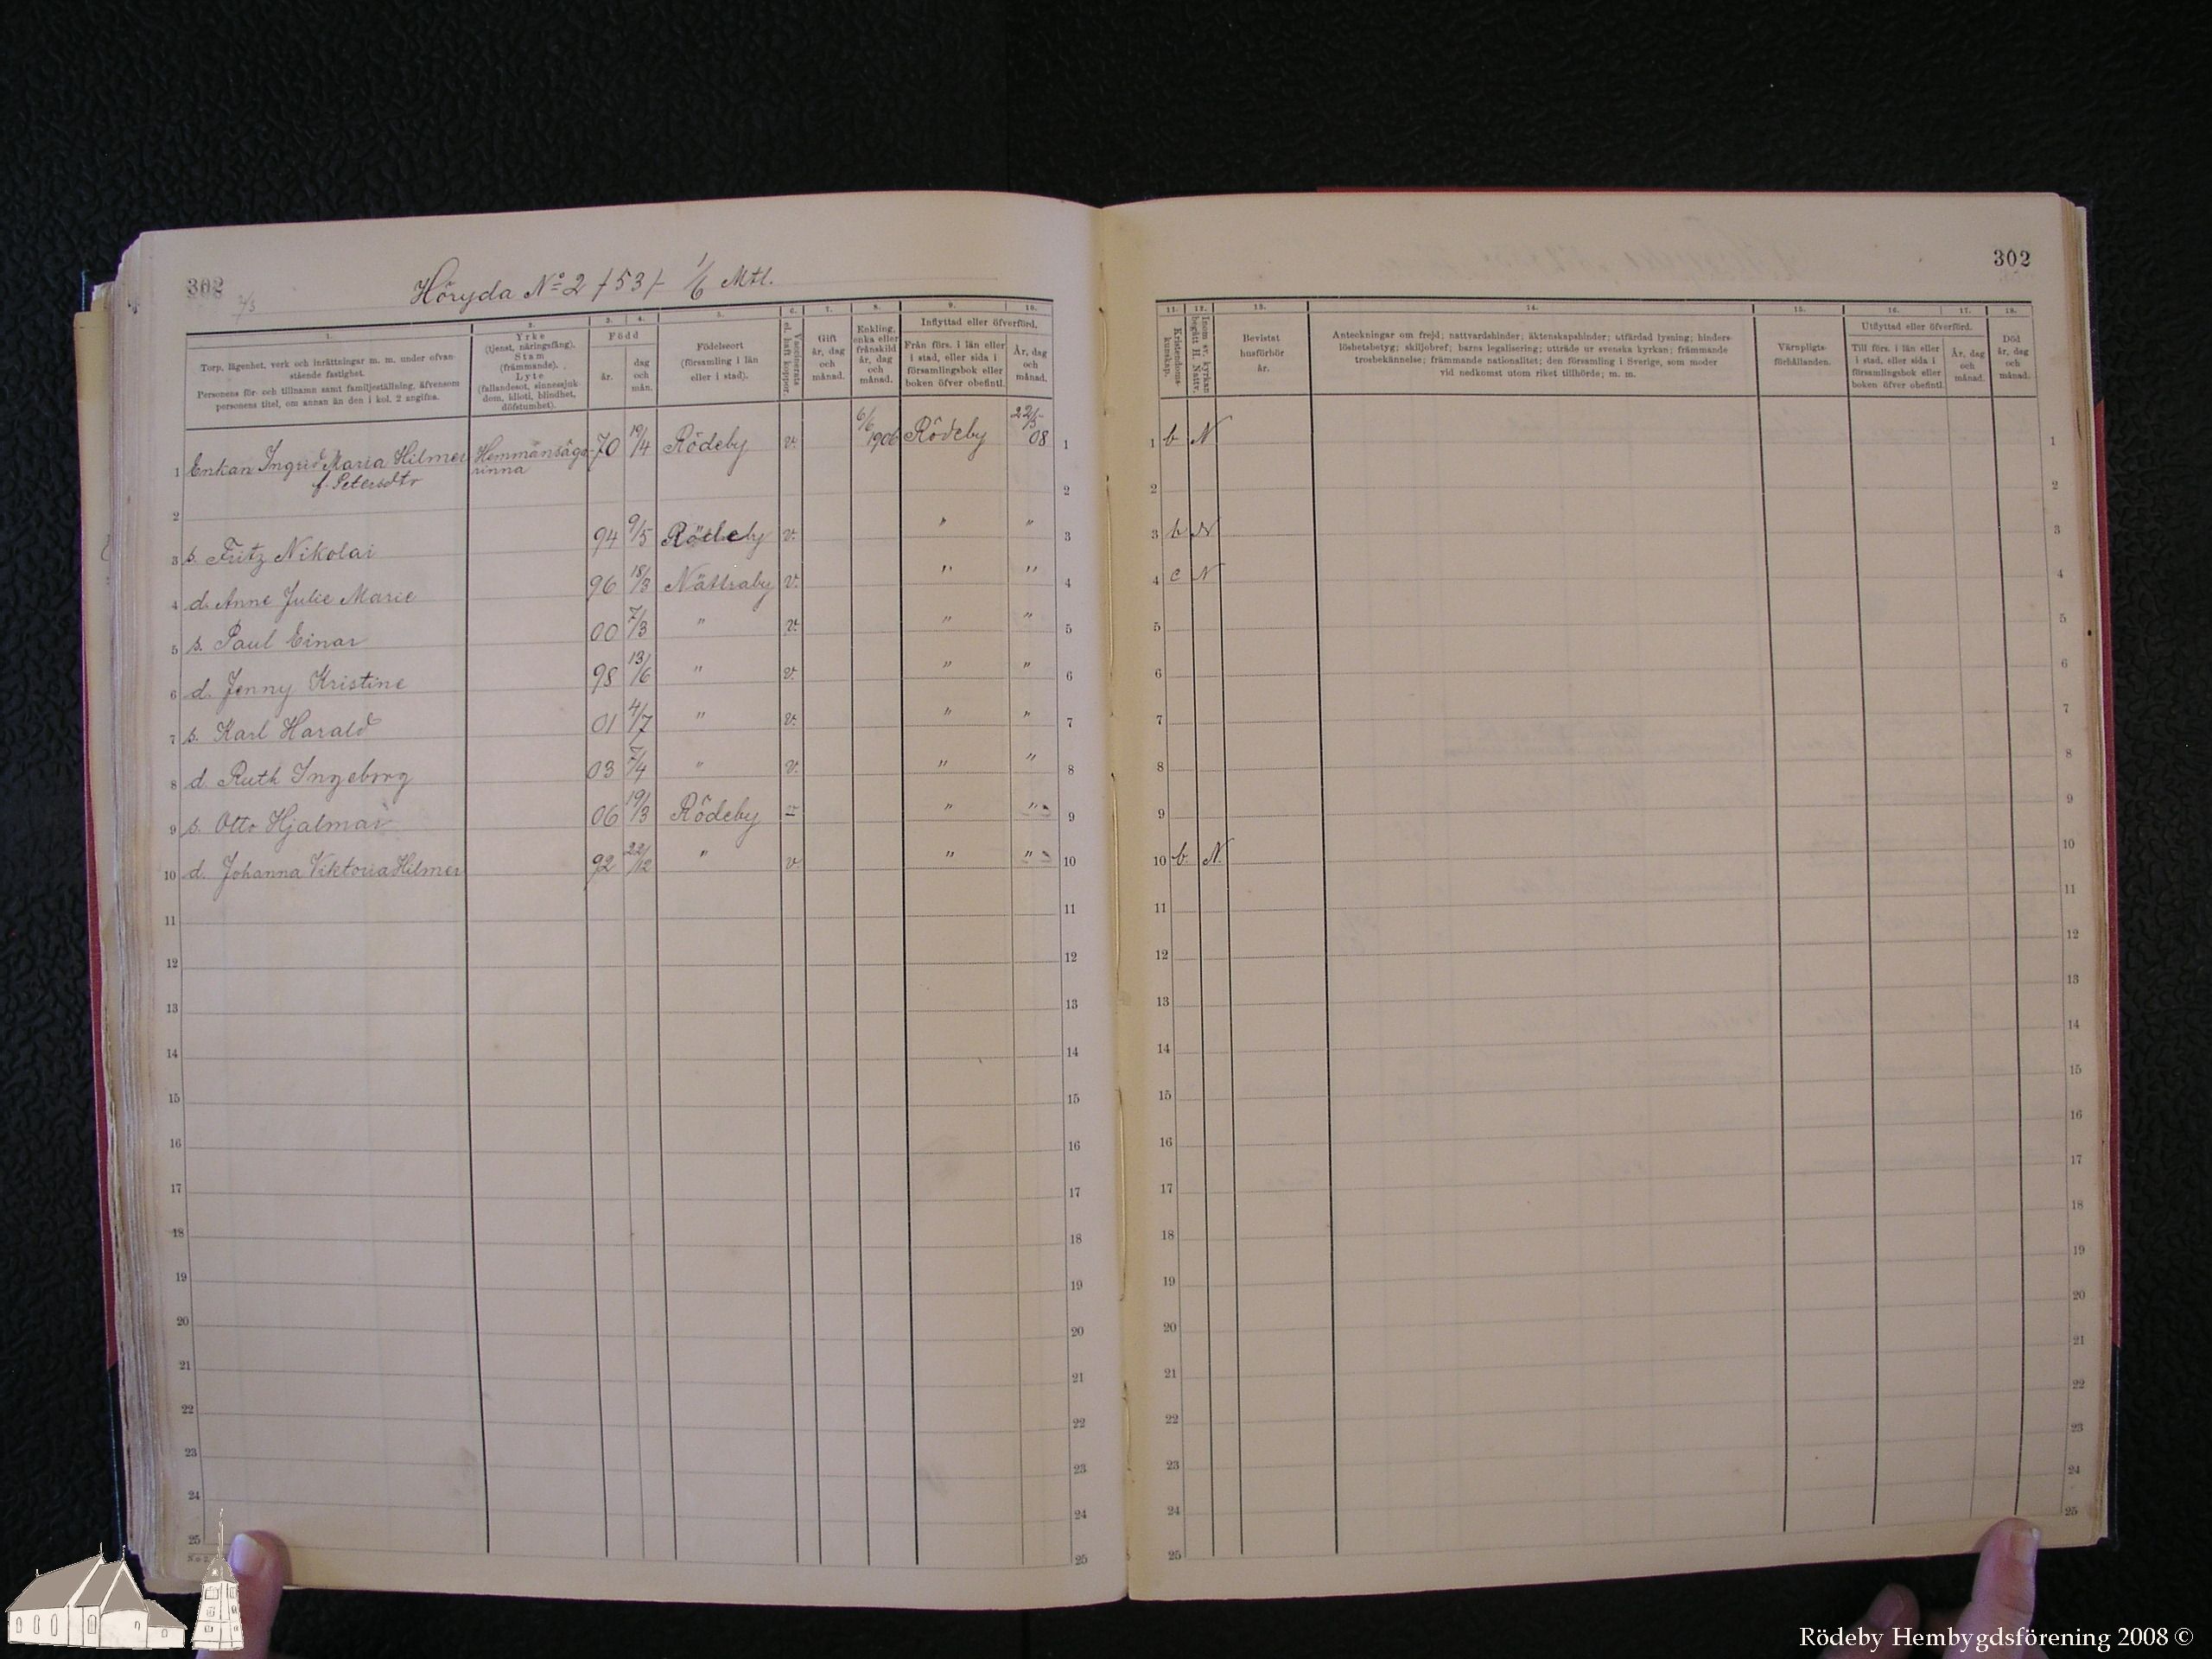 302
7/3
Höryda No 2 /53/- 1/6 Mtl.
1.
Torp, lägenhet, verk och inrättningar m. m. under ofvan-
stående fastighet.
Personens för- och tillnamn samt familjeställning, äfvensom
personens titel, om annan än den i kol. 2 angifna.
2.
Yrke
(tjenst, näringsfång).
Stam
(främmande).
Lyte
(fallandesot, sinnessjuk-
dom, idioti, blindhet,
döfstumhet).
3. 4.
Född
år.
dag
och
mån.
5.
Födelseort
(församling i län
eller i stad).
6.
Vaccinerats
el. haft koppor.
7.
Gift
år, dag
och
månad.
8.
Enkling,
enka eller
frånskild
år, dag
och
månad.
9. 10.
Inflyttad eller öfverförd.
Från förs. i län eller
i stad, eller sida i
församlingsbok eller
boken öfver obefintl.
År, dag
och
månad.
1 Enkan Ingrid Maria Hilmer Hemmansäga- 70 19/4 Rödeby v. 6/6 1906 Rödeby 22/5 08 1
f. Petersdtr rinna
2 2
3 s. Fritz Nikolai 94 9/5 Rödeby v. " " 3
4 d. Anne Julie Marie 96 18/3 Nättraby v. " " 4
5 s. Paul Einar 00 7/3 " v. " " 5
6 d. Jenny Kristine 98 13/6 " v. " " 6
7 s. Karl Harald 01 4/7 " v. " " 7
8 d. Ruth Ingeborg 03 7/4 " v. " " 8
9 s. Otto Hjalmar 06 19/3 Rödeby v " " 9
10 d. Johanna Viktoria Hilmer 92 22/12 " v. " " 10
11 11
12 12
13 13
14 14
15 15
16 16
17 17
18 18
19 19
20 20
21 21
22 22
23 23
24 24
25 25
302
11.
Kristendoms-
kunskap.
12.
Inom sv. kyrkan
begått H. Nattv.
13.
Bevistat
husförhör
år.
14.
Anteckningar om frejd; nattvardshinder; äktenskapshinder; utfärdad lysning; hinders-
löshetsbetyg; skiljobref; barns legalisering; utträde ur svenska kyrkan; främmande
trosbekännelse; främmande nationalitet; den församling i Sverige, som moder
vid nedkomst utom riket tillhörde; m. m.
15.
Värnpligts-
förhållanden.
16. 17.
Utflyttad eller öfverförd.
Till förs. i län eller
i stad, eller sida i
församlingsbok eller
boken öfver obefintl.
År, dag
och
månad.
18.
Död
år, dag
och
månad.
1 b N 1
2 2
3 b N 3
4 c N 4
5 5
6 6
7 7
8 8
9 9
10 b N 10
11 11
12 12
13 13
14 14
15 15
16 16
17 17
18 18
19 19
20 20
21 21
22 22
23 23
24 24
25 25
Rödeby Hembygdsförening 2008 ©